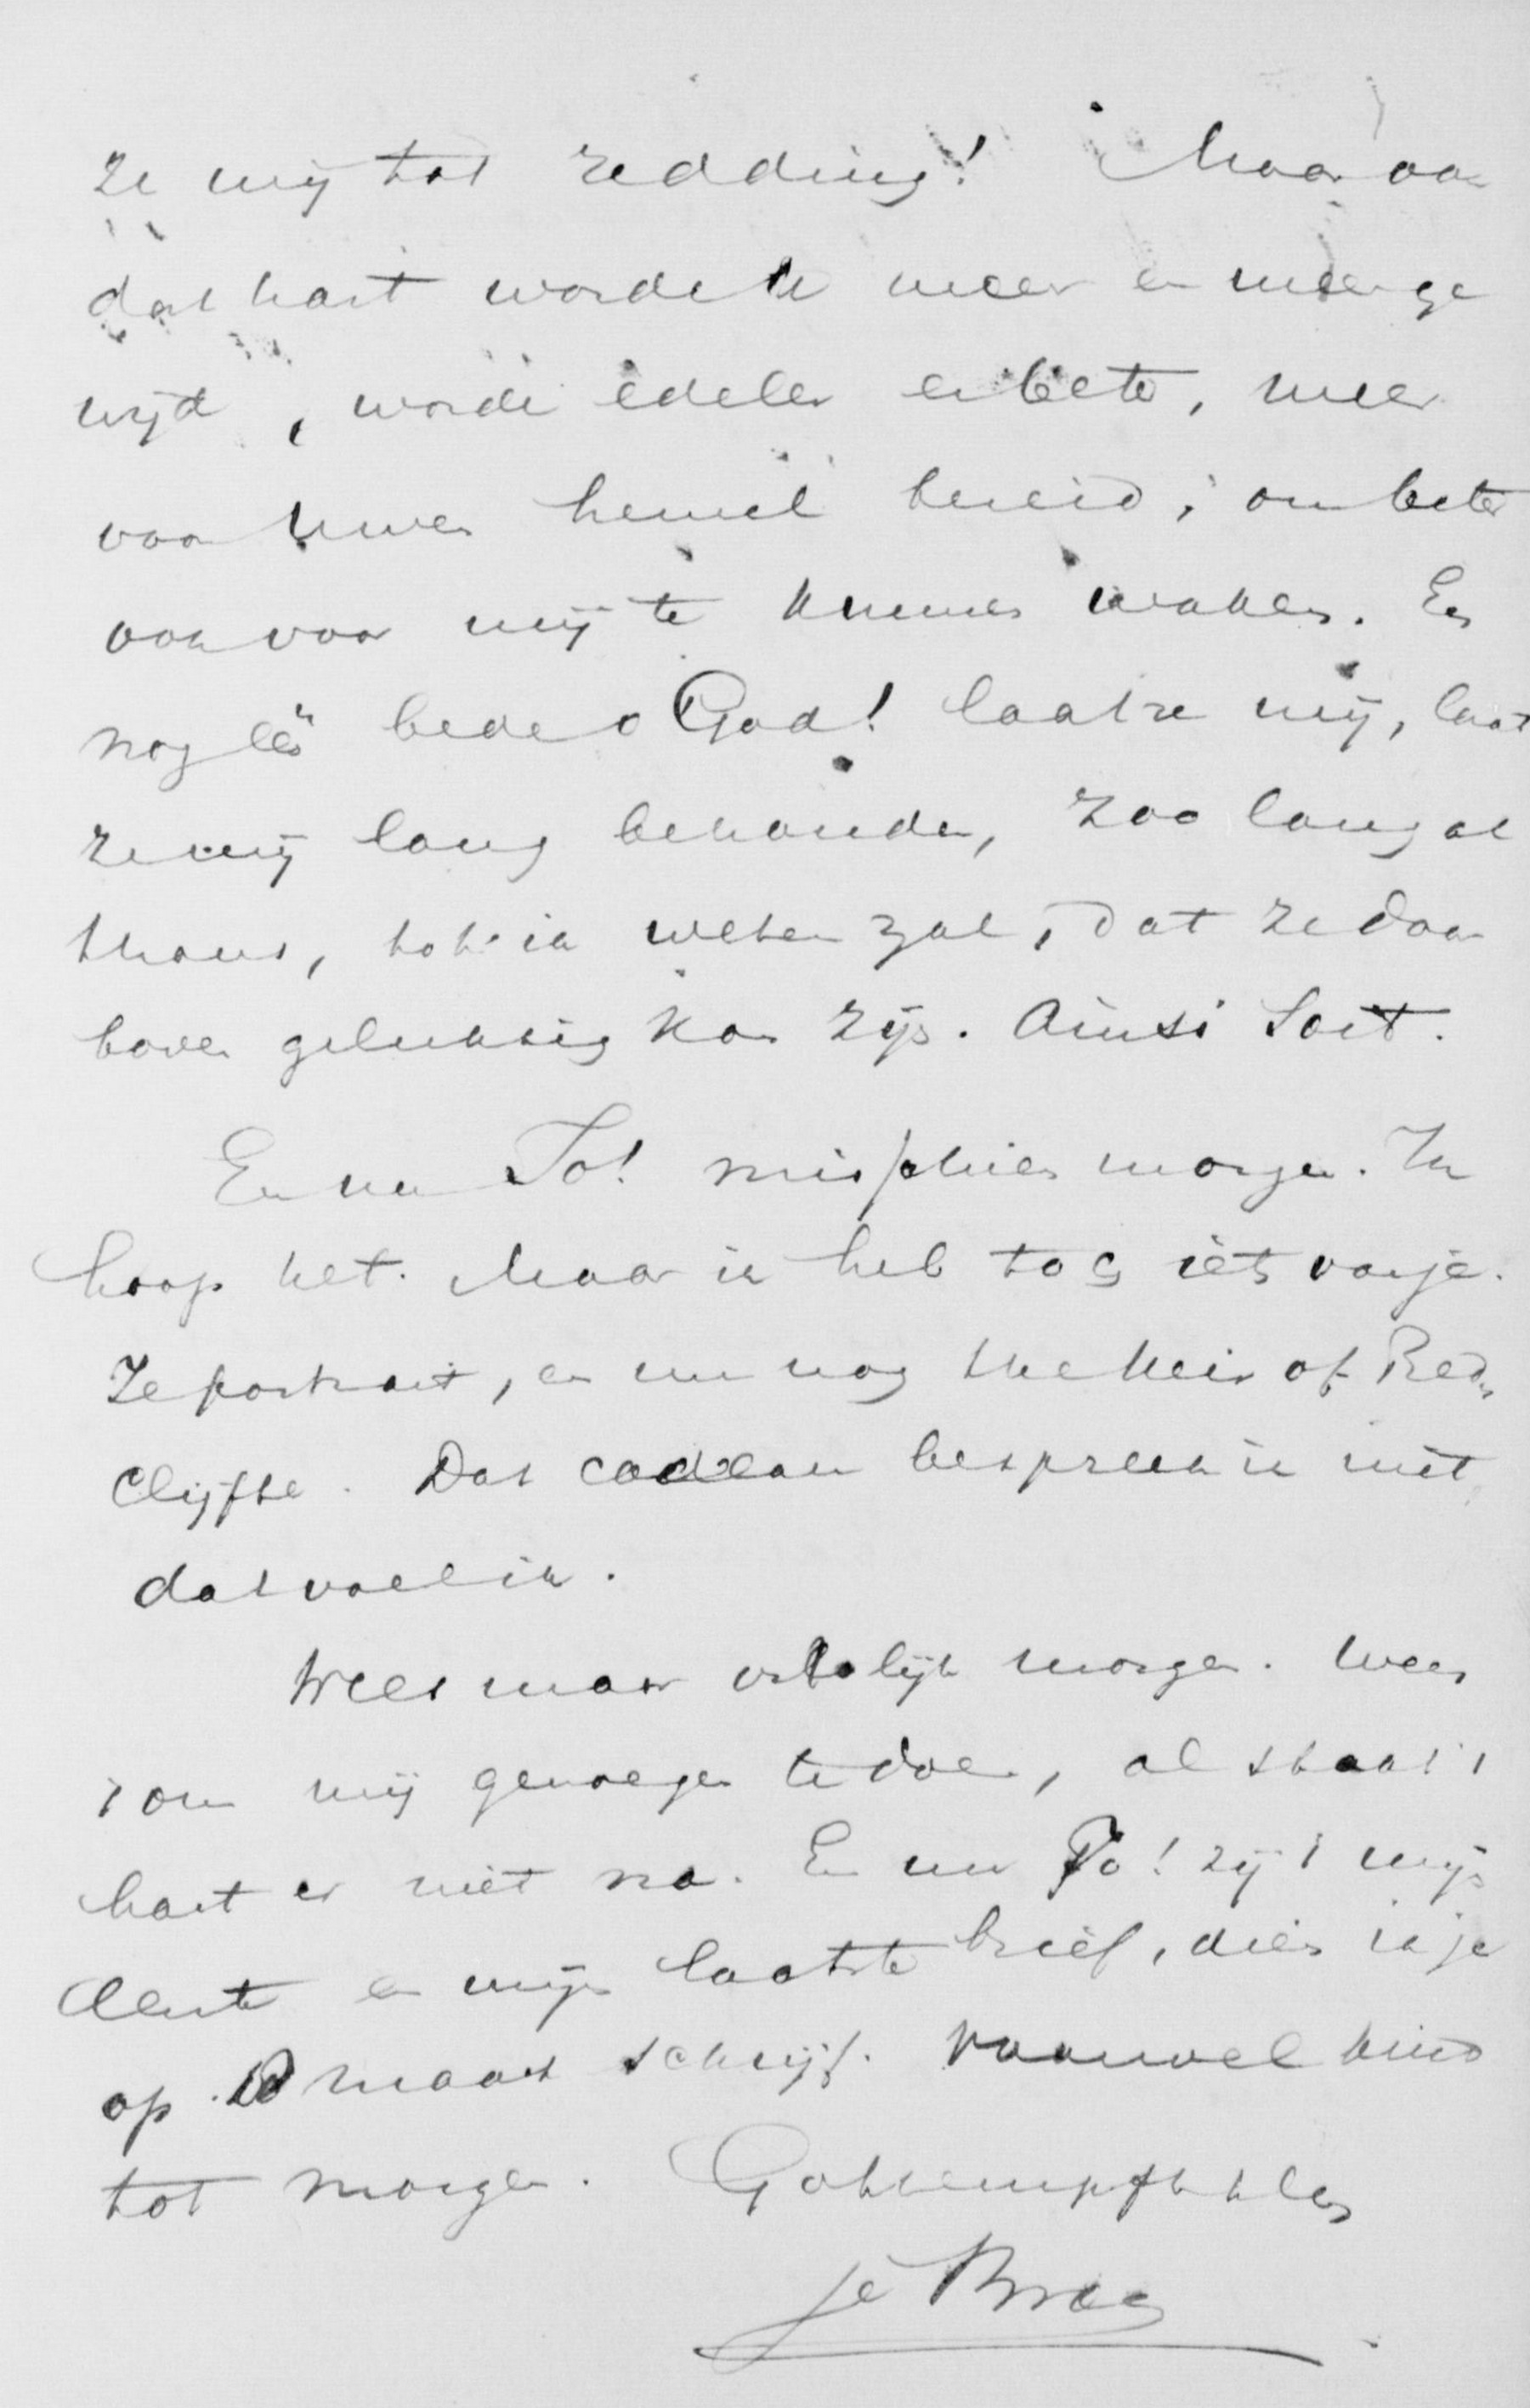 ze mij tot redding! Maar ook
dat hart worde U meer en meer ge
wijd, worde edeler en beter, meer
voor Uwen hemel bereid, om beter
ook voor mij te kunnen waken. En
nog één bede o God! laat ze mij, laat
ze mij lang behouden, zoo lang al
thans, tot ik weten zal, dat ze daar
boven gelukkig kan zijn. Ainsi Soit.
En nu Jo! misschien morgen. Ik
hoop het. Maar ik heb tog iets van je.
Je portrait, en nu nog the Heir of Red-
clyffe. Dat cadeau bespreek ik niet
dat voel ik.
Wees maar vrolijk morgen. Wees
't om mij genoegen te doen, al staat 't
hart er niet na. En nu Jo! zij 't mijn
eerste en mijn laatste brief, dien ik je
op maart schrijf. Vaarwel kind
tot morgen. Gott empfohlen
je Bram